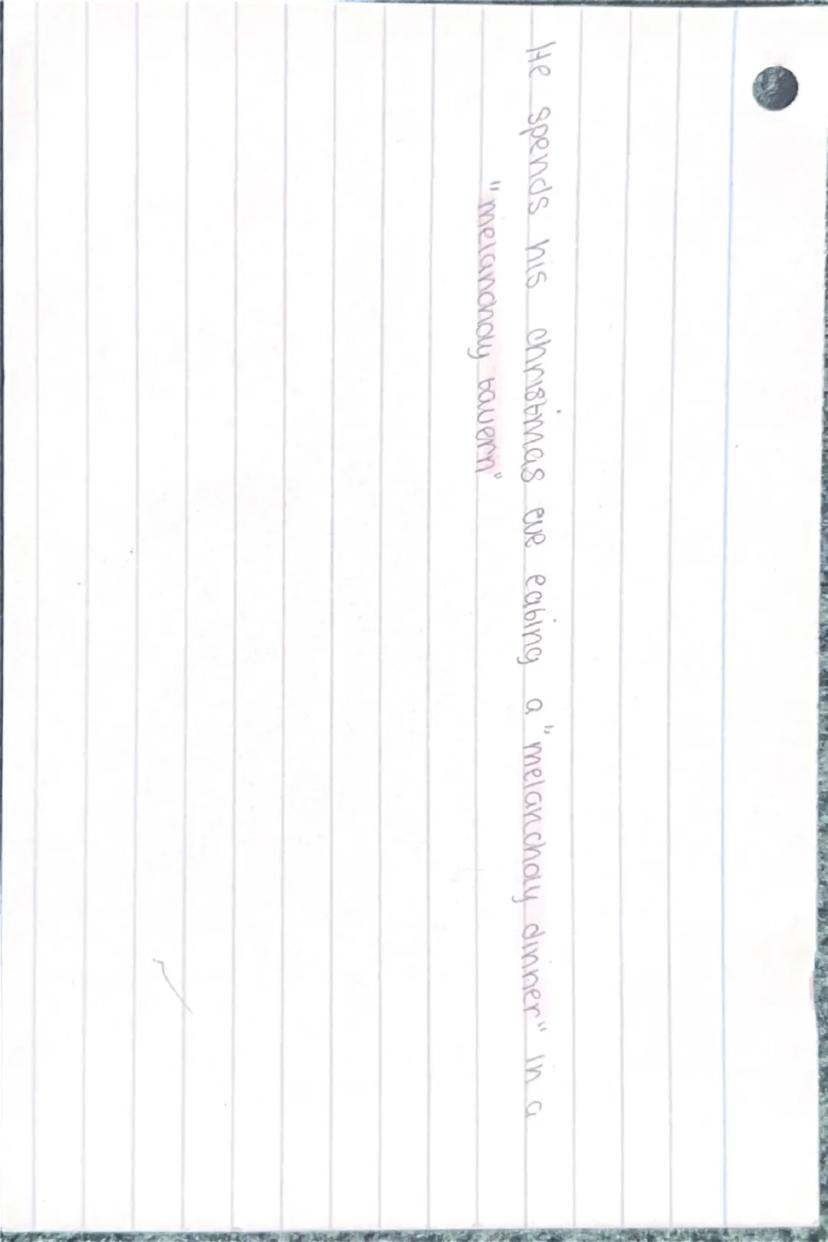 He spends his christmas eve eating a "melancholy dinner" in a
"melancholy tavern"